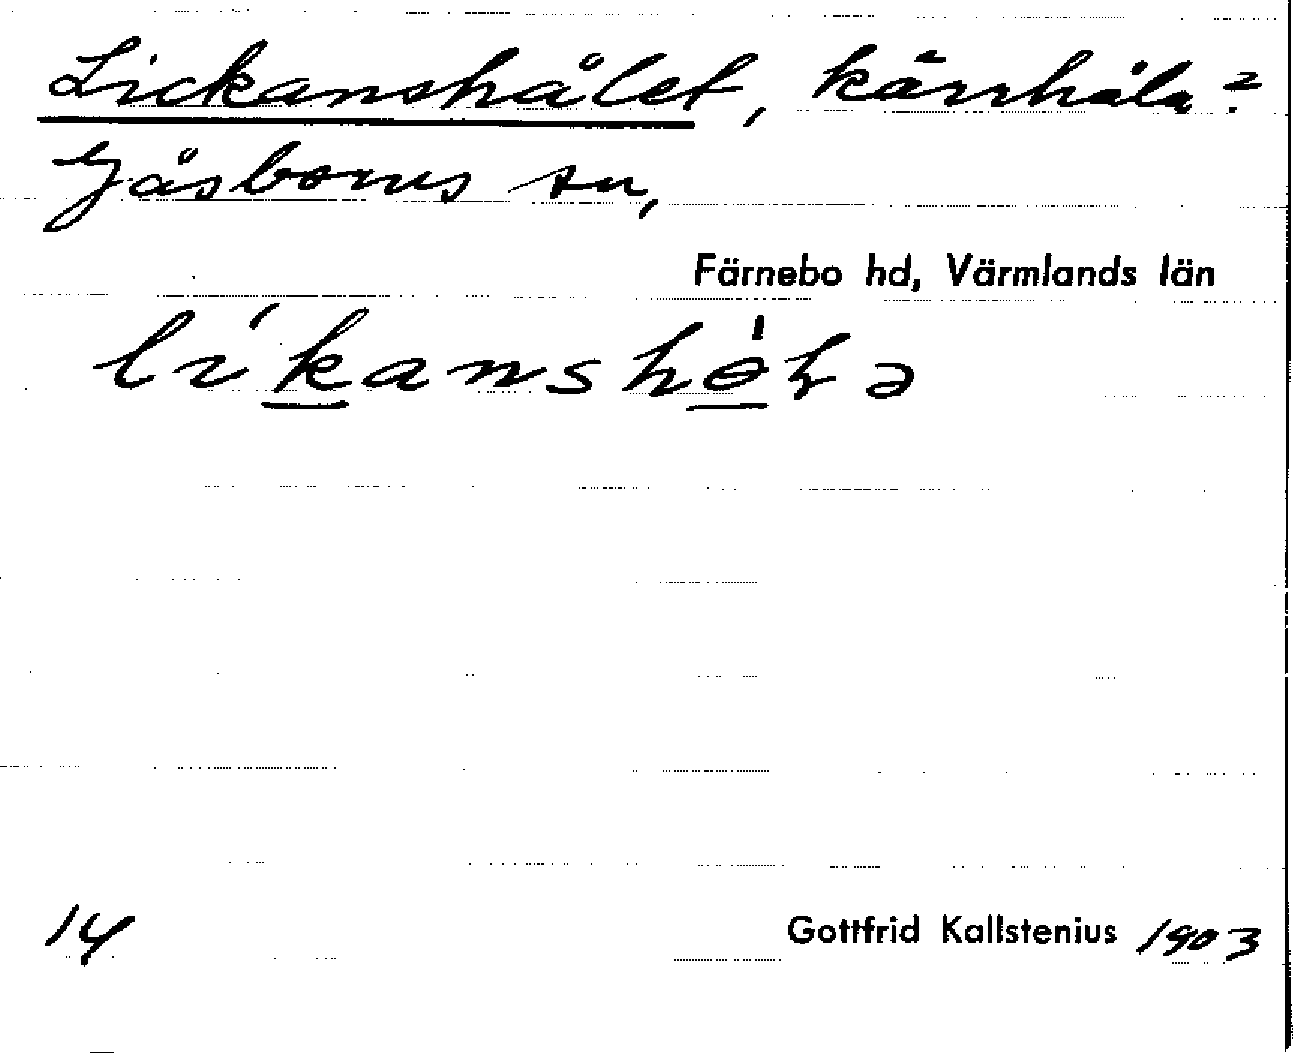 Lickanshålet, kärrhåla?
Gåsborns sn,
Färnebo hd, Värmlands län
li'kanshɵ̀ɽə
14
Gottfrid Kallstenius 1903